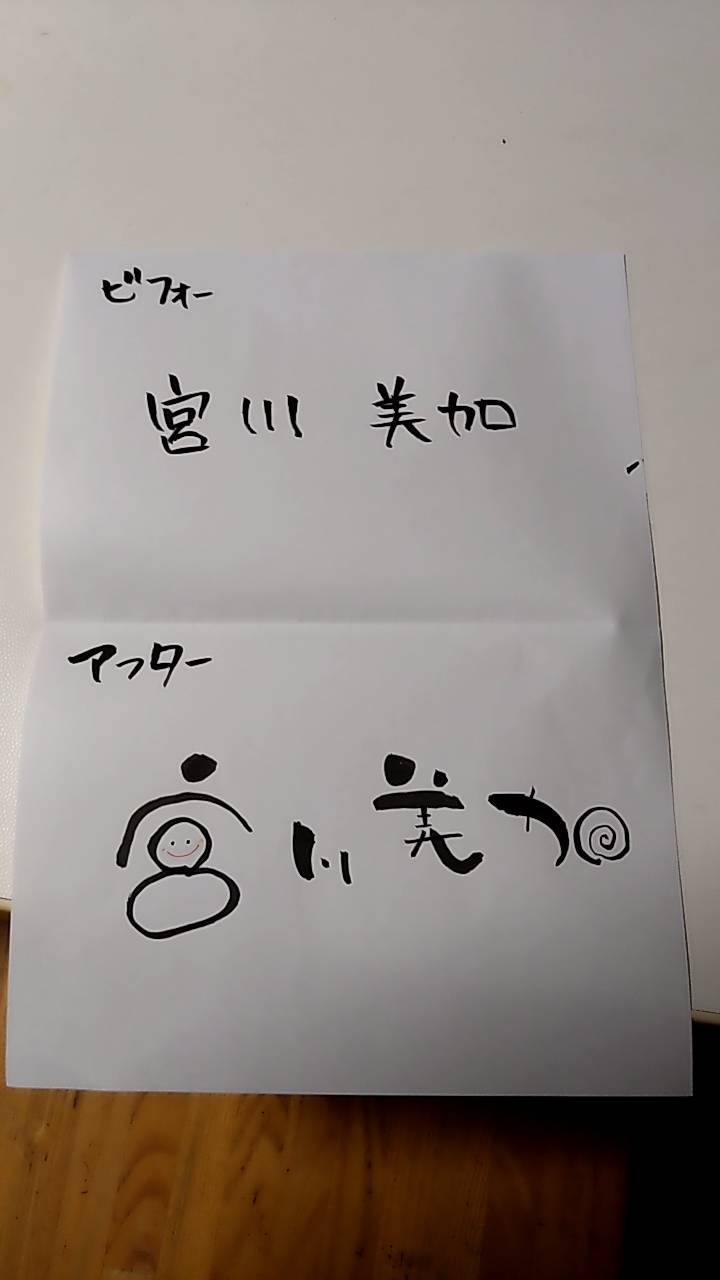 ビフォー
宮川 美加
アフター
宮川 美加